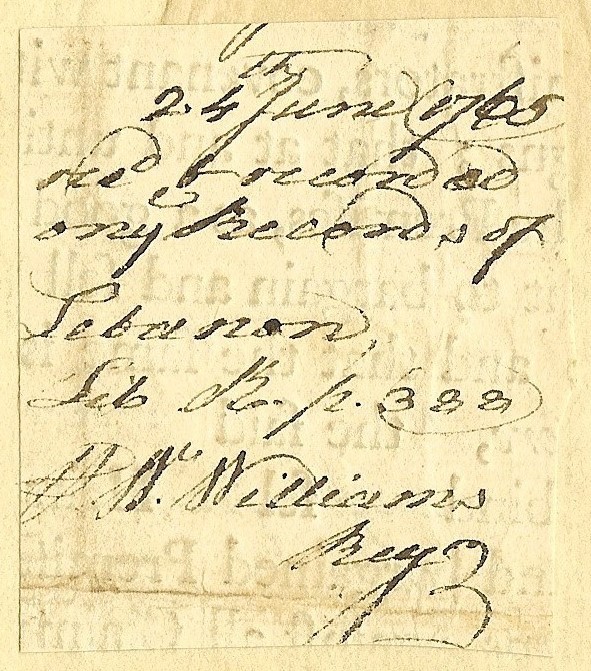 24th June 1765
recd & recorded
on ye Records of
Lebanon,
Lib K. p. 388
pr Wm Williams
Regr